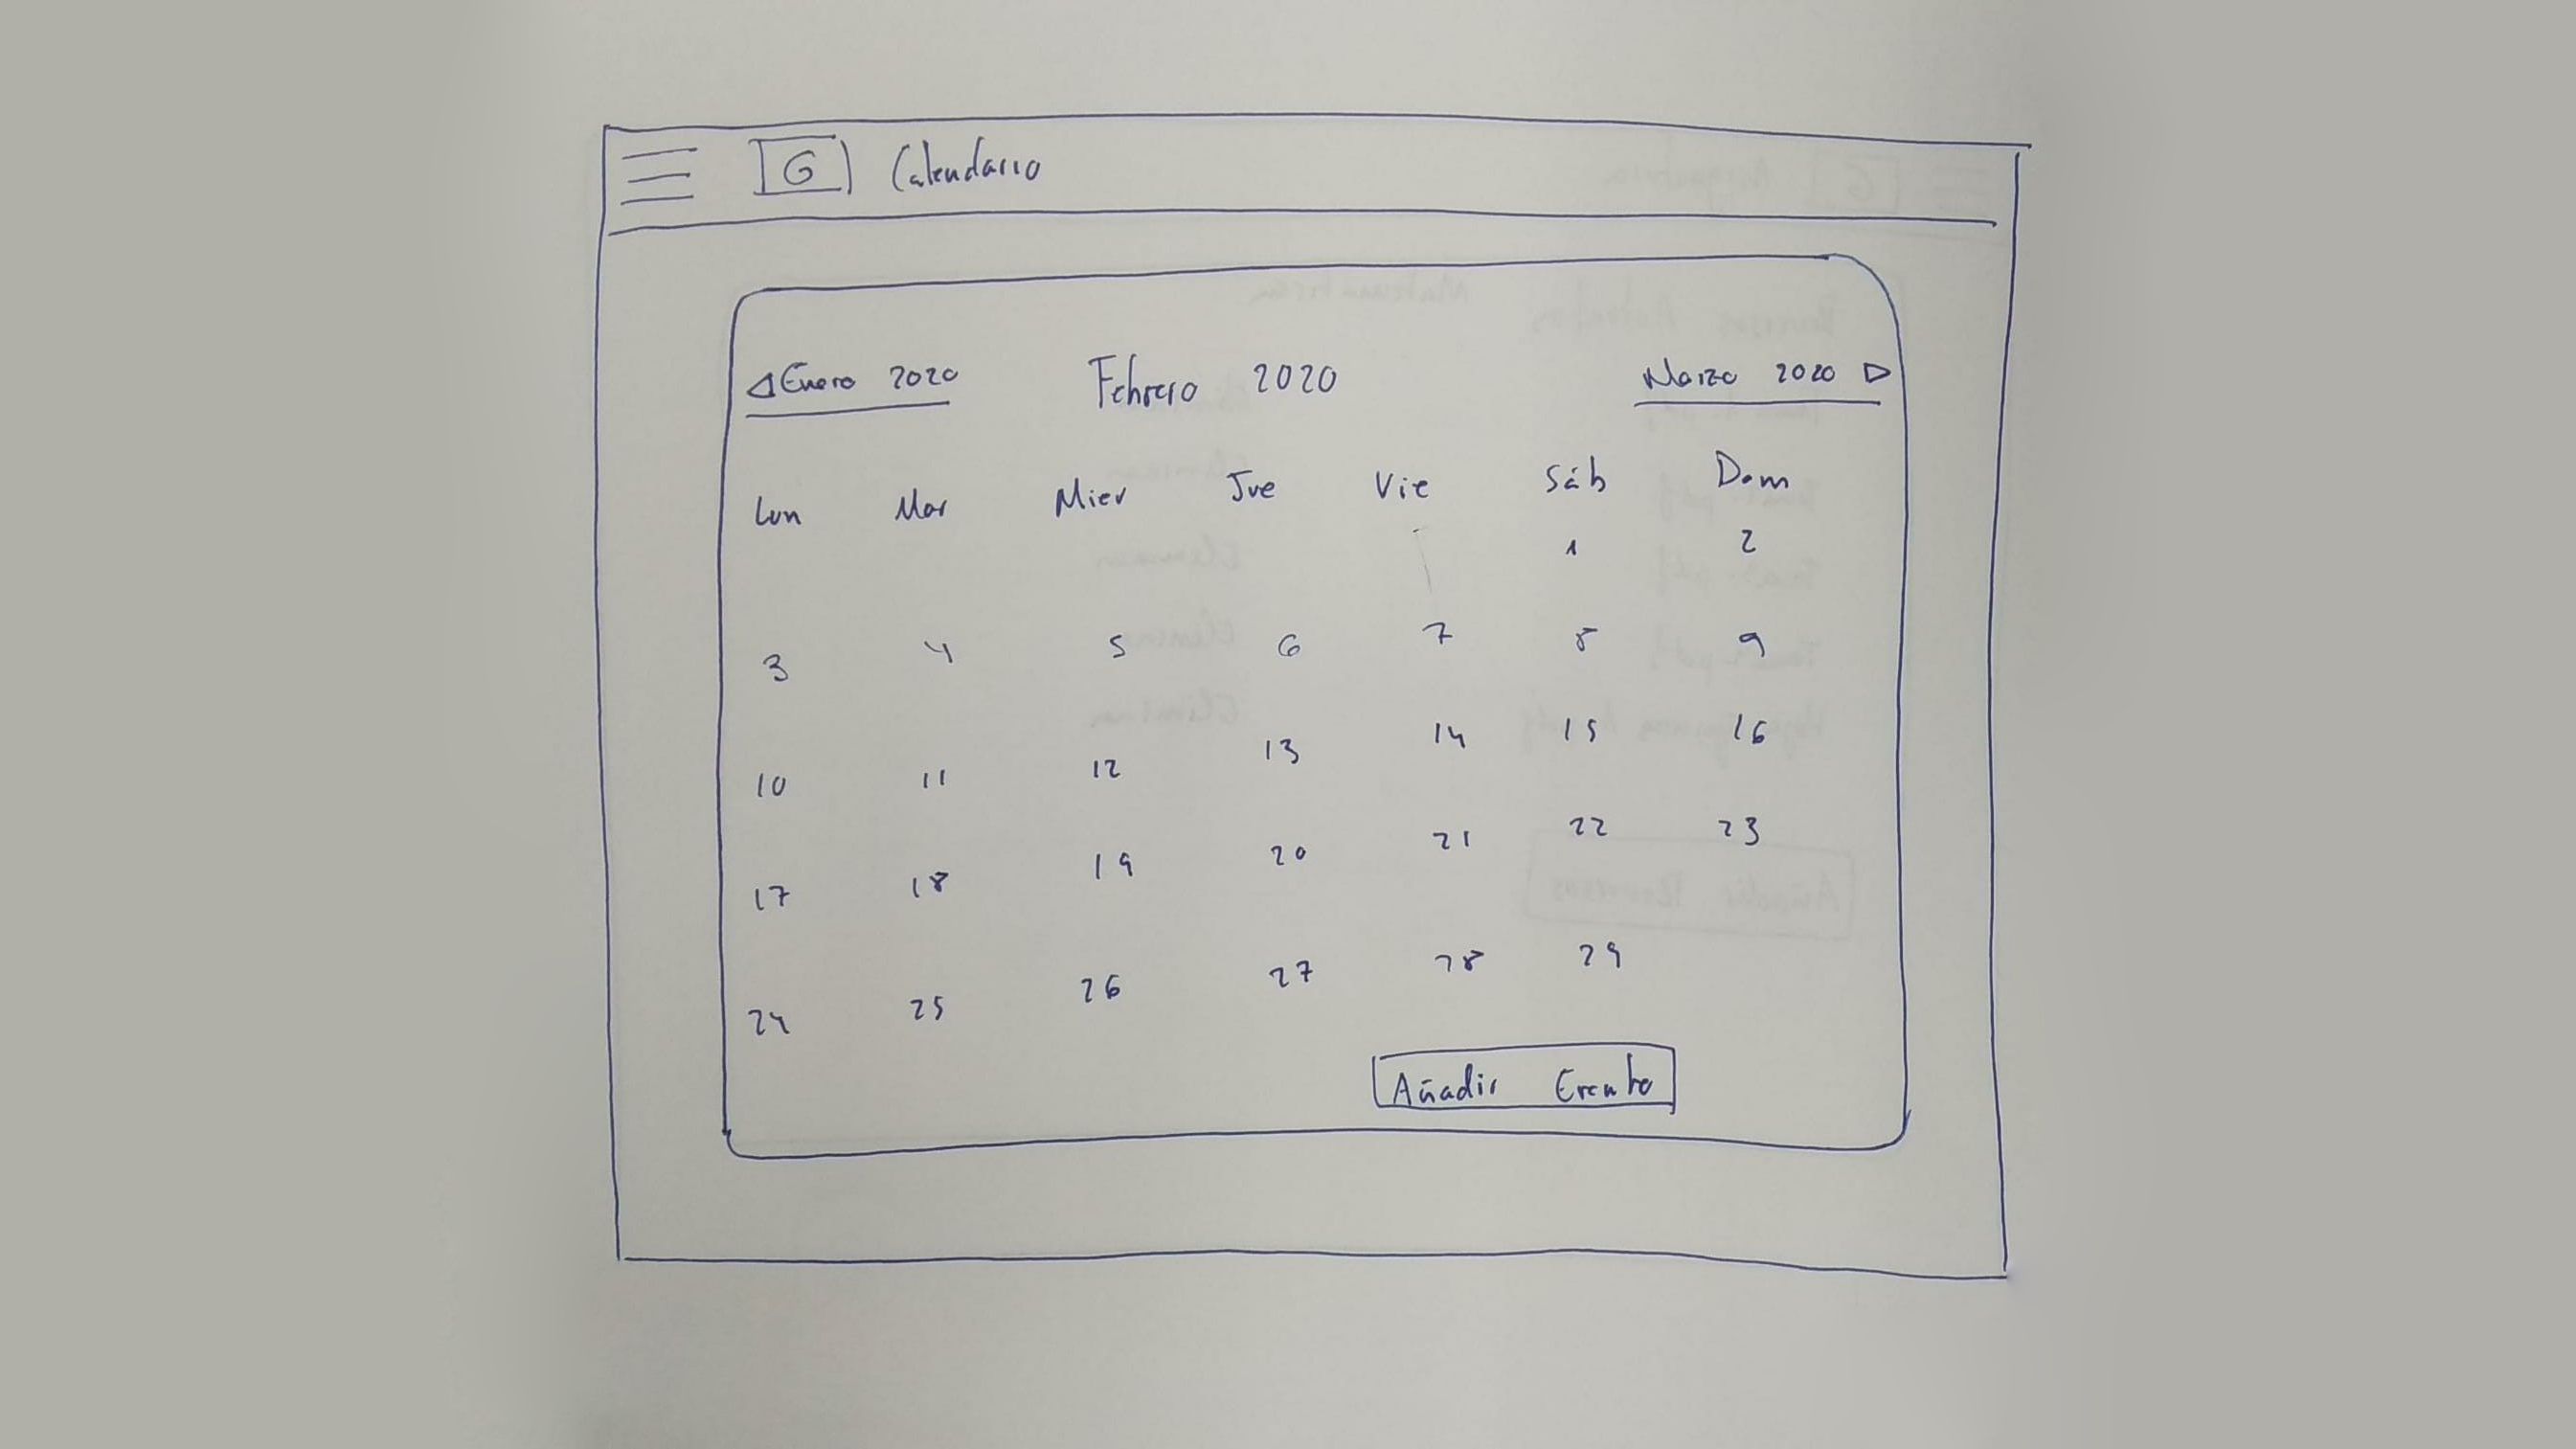 G Calendario
◁ Enero 2020 Febrero 2020 Marzo 2020 ▷
Lun Mar Mier Jue Vie Sáb Dom
1 2
3 4 5 6 7 8 9
10 11 12 13 14 15 16
17 18 19 20 21 22 23
24 25 26 27 28 29
Añadir Evento